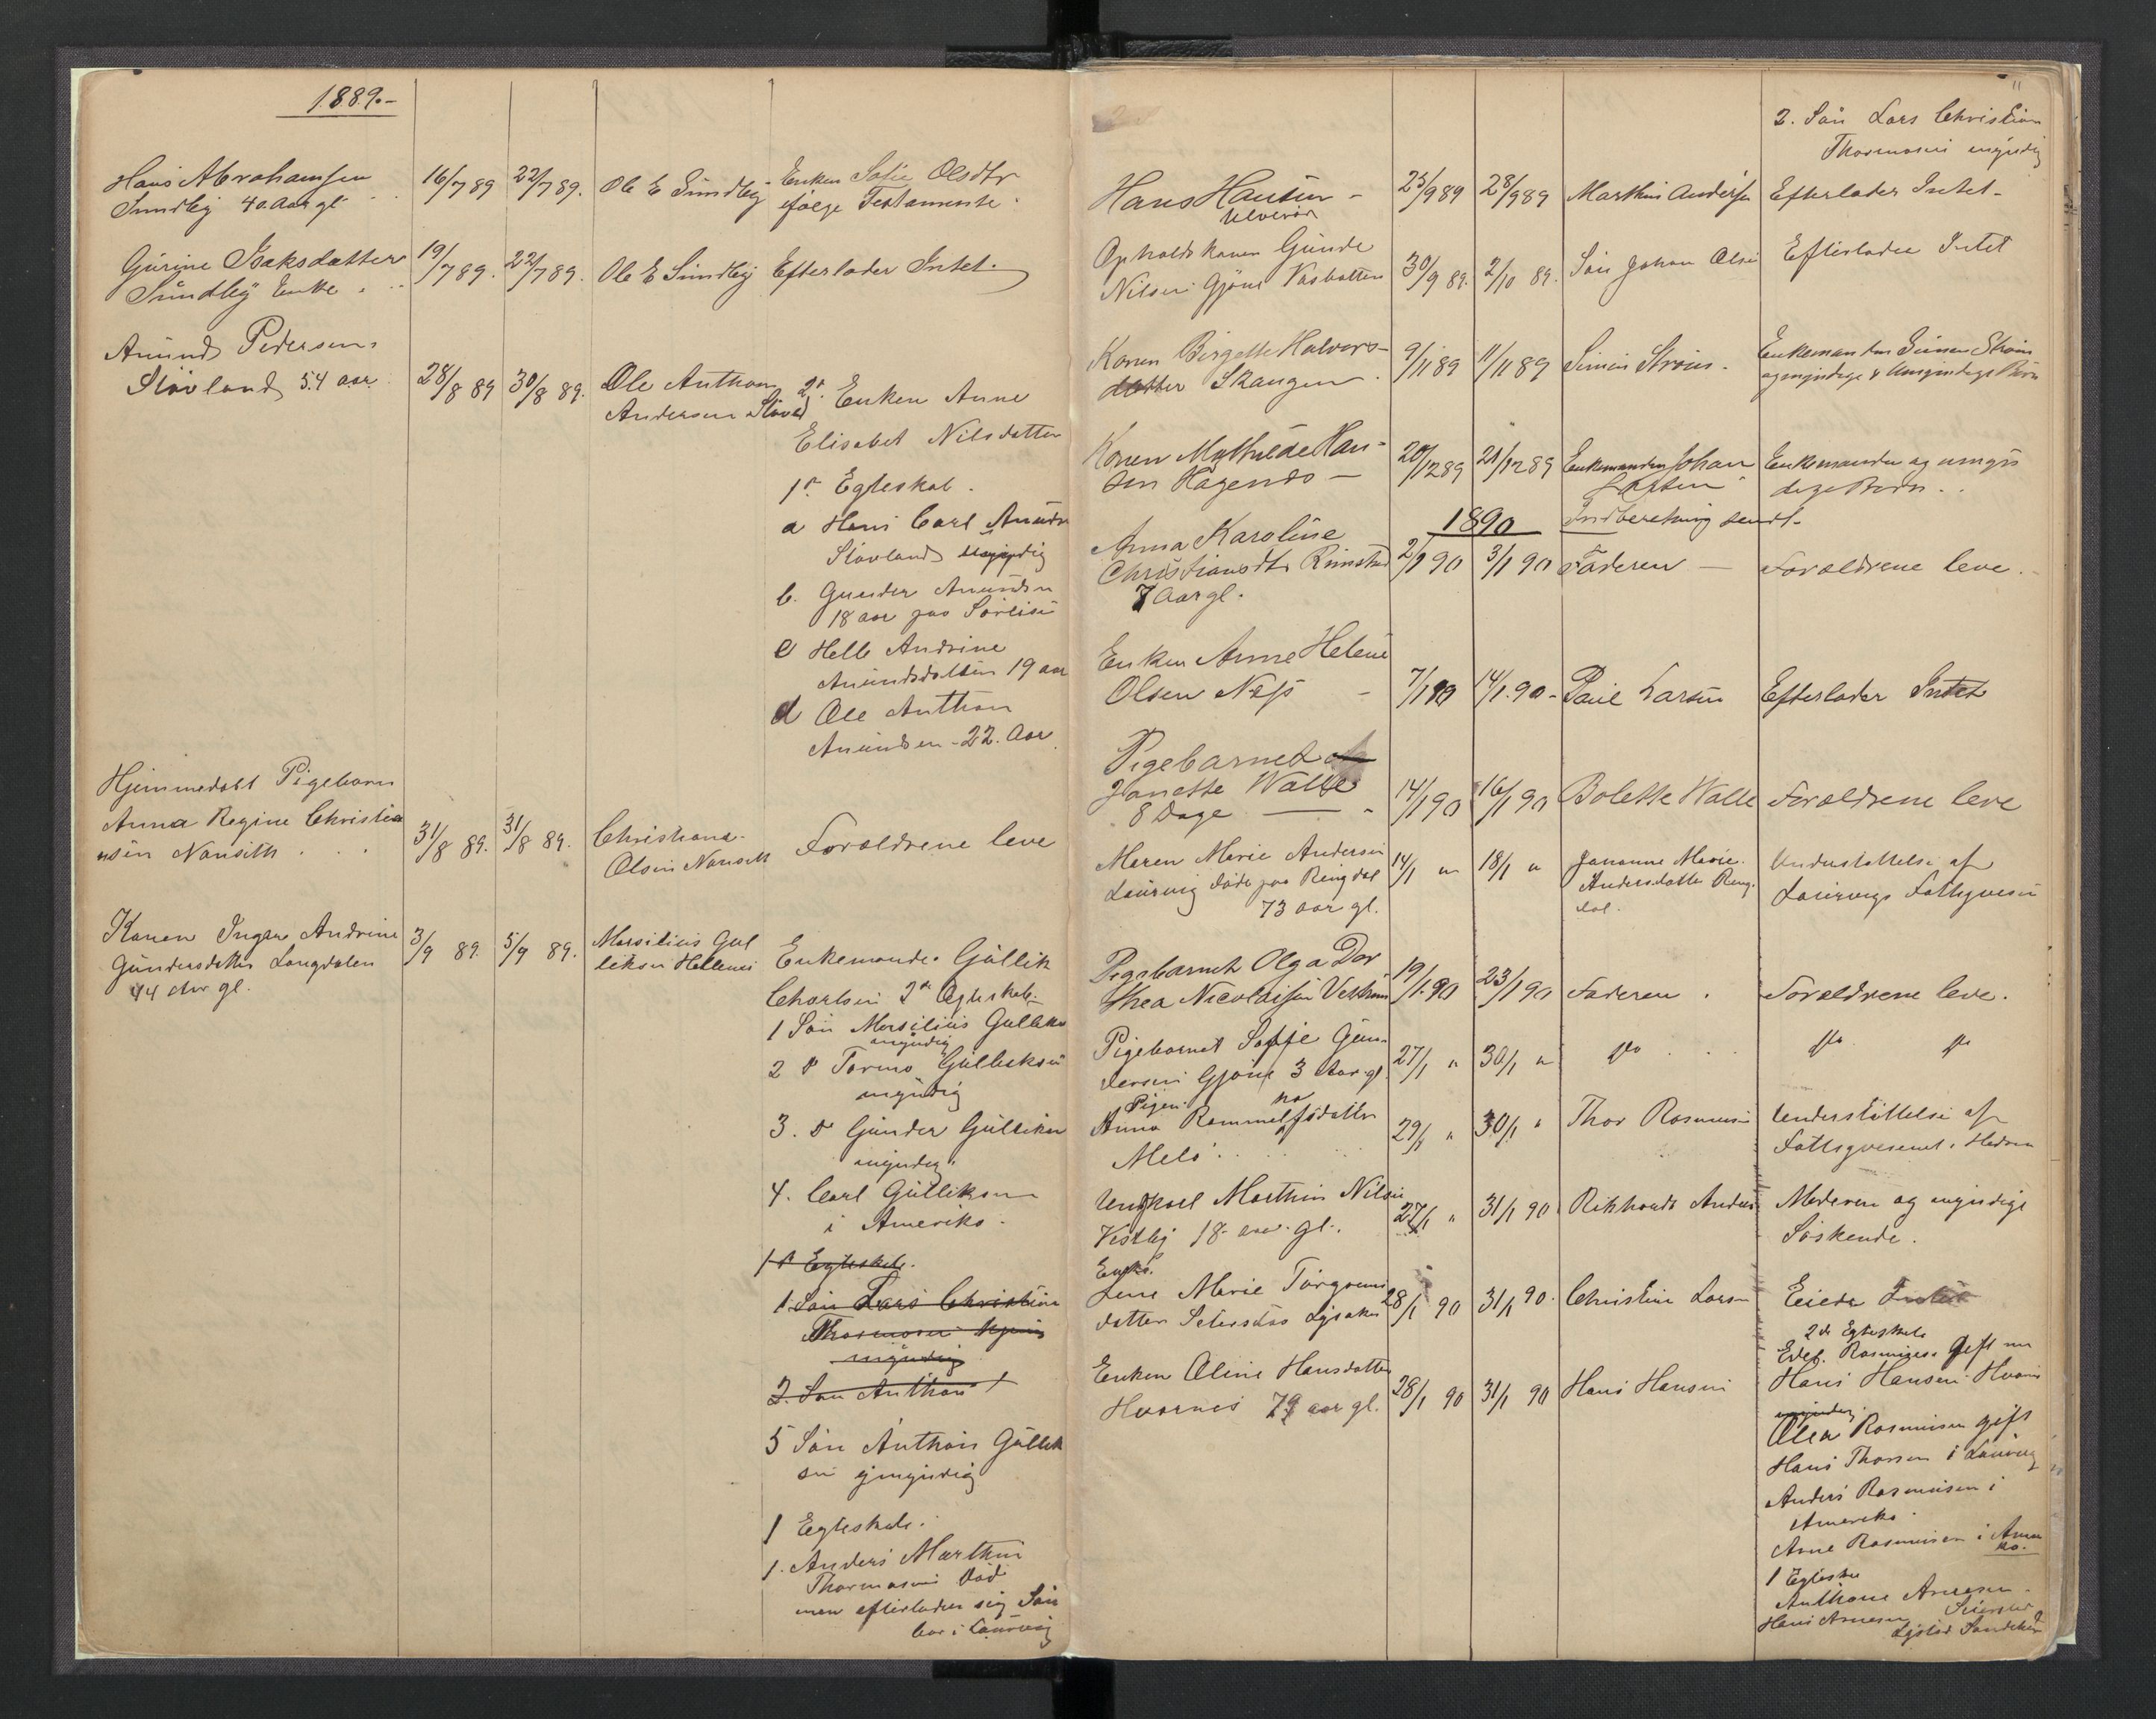 1889.-
Hans Abrahamsen 16/7 89 22/7 89. Ole E Sundby Enken Sofie Olsdtr
Sundby 40 Aar gl ifølge Testamente.
Gurine Isaksdatter 19/7 89. 22/7 89. Ole E Sundby Efterlader Intet.
Sundby Enke.
Amund Pedersen
Stavland 54 aar 28/8 89 30/8 89. Ole Anthon 2t Enken Anne
Andersen
Elisabet Nilsdatter
1t Egteskab.
a Hans Carl
b. Gunder Amundsen
18 aar paa
c Helle Andrine
Amundsdatter 19 aar
d Ole Anthon
Amundsen - 22. Aar
Hjemmedøbt Pigebarn
Anna Regine Christian
sen Nanseth 31/8 89. 31/8 89. Christiane Forældrene leve
Olsen Nanseth
Konen Inger Andrine 3/9 89. 5/9 89. Marsilius Gul Enkemanden Gullik
Gundersdatter Langdalen liksen
44 Aar gl. Charlsen 2t Egteskab
1 Søn Marsilius Gulliksen
myndig
2 D Tormo Gulliksen
myndig
3. D Gunder Gulliksen
myndig
4. Carl Gulliksen
i Amerika.
1t Egteskab.
1. Søn Lars Christian
myndig
2. Søn Anthon
5 Søn Anthon Gullik
sen myndig
1 Egteskab.
1. Anders Marthin
Thormosen Død
men efterlader sig Søn
bor i Laurvig
11
2. Søn Lars Christian
Thormosen myndig
Hans Hansen - 25/9 89 28/9 89 Marthin Andersen Efterlader Intet-
Ulverød
Opholdskonen Gunde
Nilsen Gjøne Vasbotten 30/9 89. 2/10 89. Søn Johan Olsen Efterlader Intet
Konen Birgette Halvors- 9/11 89 11/11 89 Simen Strøm. Enkemanden Simen Strøm
datter Skaugen og myndige & Umyndige Børn
Konen Mathilde Han- 20/12 89 21/12 89 Enkemanden Johan Enkemanden og umyn
sen - Larsen dige Børn.
1890 Indberetning sendt.
Anna Karoline
Christiansdtr 2/1 90 3/1 90 Faderen - Forældrene leve.
7 Aar gl.
Enken Anne Helene
Olsen Næss - 7/1 90 14/1. 90- Paul Larsen Efterlader Intet
Pigebarnet
Janette Walle 14/1 90 16/1 90 Bolette Walle Forældrene leve
8 Dage
Maren Marie Andersen 14/1 " 18/1 " Johanne Marie Understøttelse af
Laurvig døde paa Ringdal Andersdatter Ring- Laurvigs Fattigvæsen
73 aar gl. dal.
Pigebarnet Olga Dor
thea Nicolaisen 19/1. 90 23/1 90 Faderen. Forældrene leve.
Pigebarnet Sofie Gun-
dersen Gjøne 3 Aar gl 27/1 " 30/1 " do do do
Pigen
Anna datter 29/1 " 30/1 " Thor Rasmussen Understøttelse af
Melø Fattigvæsenet i Hedrum
Ungkarl Marthin Nilsen 27/1 " 31/1 90 Rikhard Moderen og myndige
Vestby 18 aar gl. Søskende.
Enke
Lene Marie 28/1 90 31/1 90. Christine Larsen Eiede Intet
datter
2d Egteskab
Rasmussen gift m
Enken Oline Hansdatter 28/1 90 31/1 90 Hans Hansen Hans Hansen
Hvarnes 79 aar gl. myndig
Olea Rasmussen gift
Hans Thorsen i Laurvig
Anders Rasmussen i
Amerika.
Arne Rasmussen i Ameri
ka.
1 Egteskab
Anthon Arnesen
Hans Arnesen